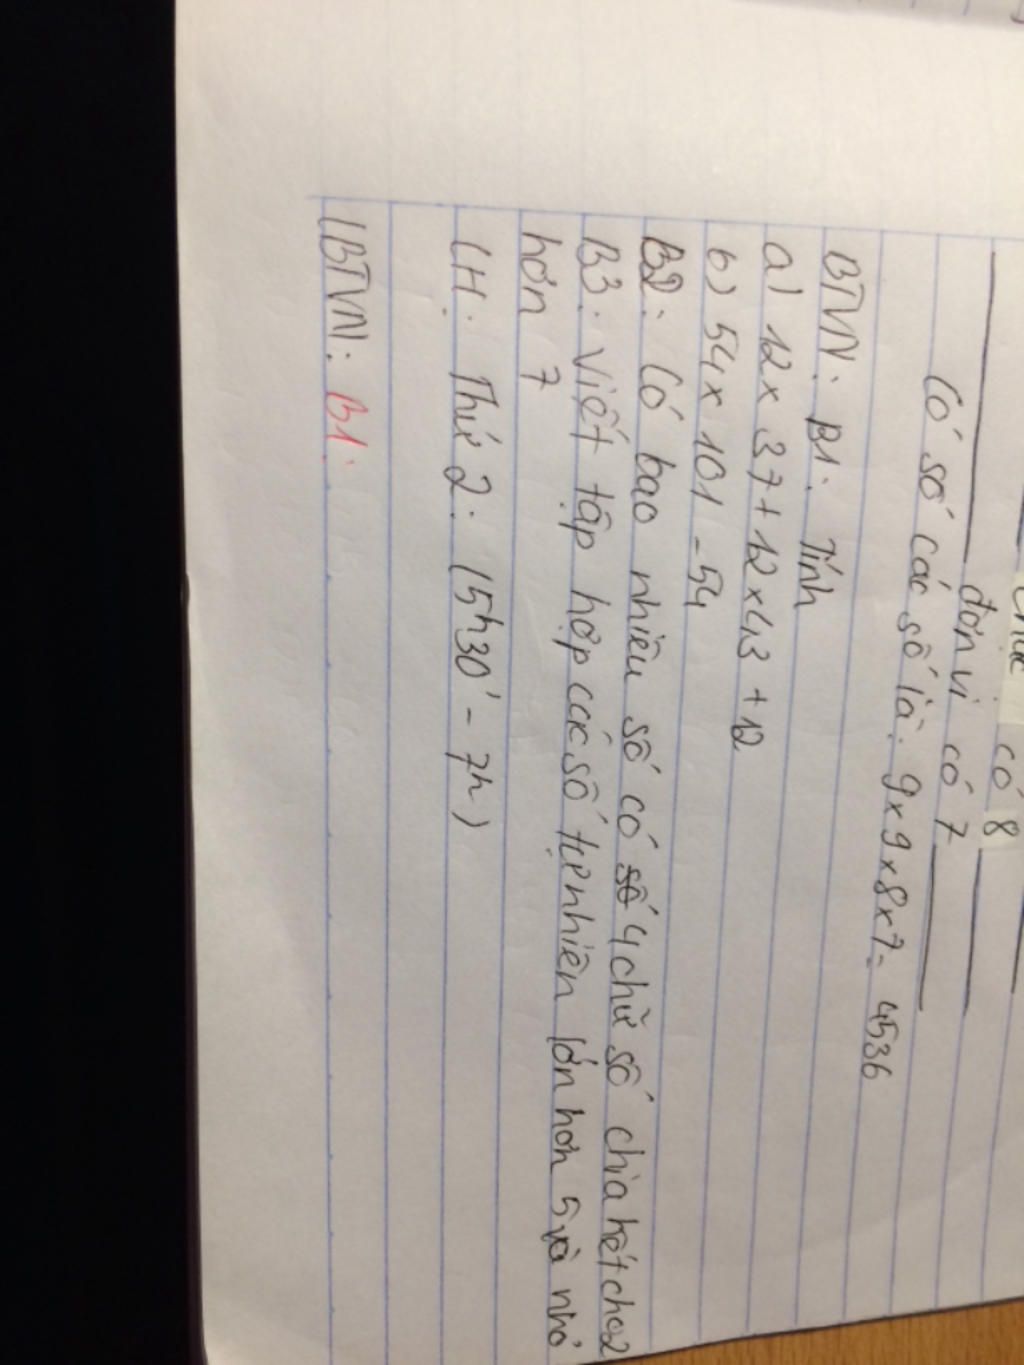 có 8
đơn vị có 7
Có số các số là: 9 x 9 x 8 x 7 = 4536
BTVN: B1: Tính
a) 12 x 37 + 12 x 43 + 12
b) 54 x 101 - 54
B2: Có bao nhiêu số có 4 chữ số chia hết cho 2
B3: Viết tập hợp các số tự nhiên lớn hơn 5 và nhỏ
hơn 7
LH: Thứ 2: (5h30' - 7h)
BTVN: B1: